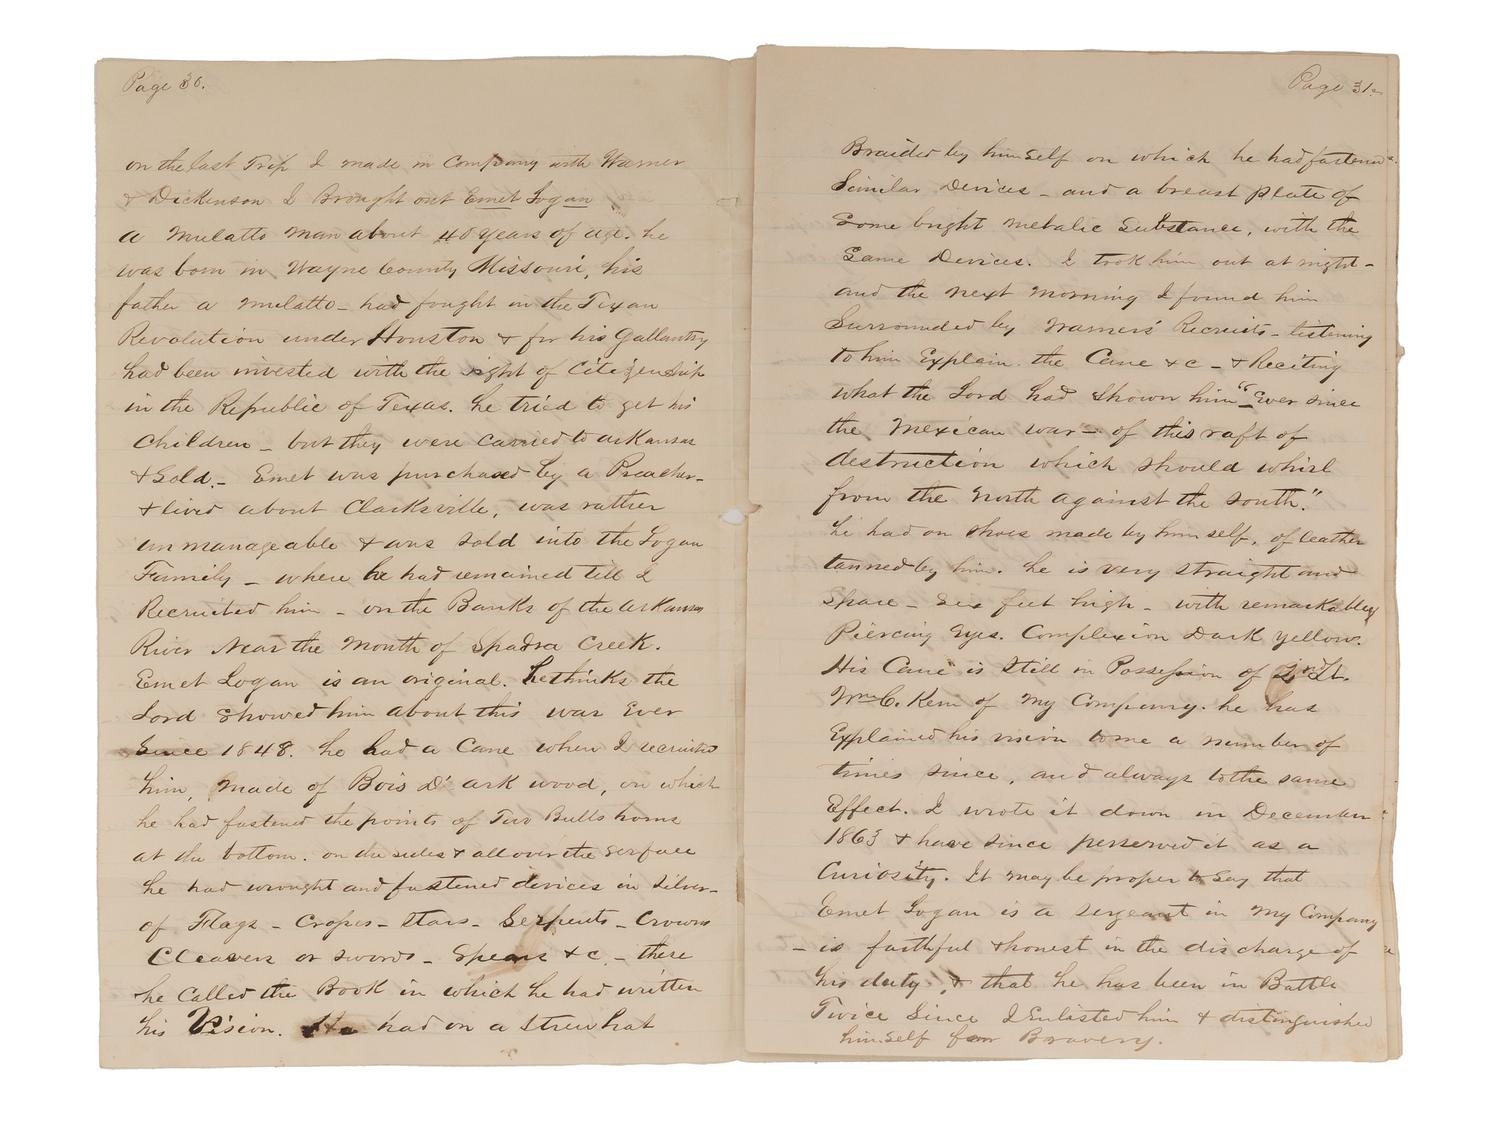 Page 30.
on the last Trip I made in Company with Warner
& Dickinson I Brought out Emet Logan
a Mulatto man about 40 years of age. he
was born in Wayne County Missouri, his
father a mulatto - had fought in the Texan
Revolution under Houston & for his Gallantry
had been invested with the right of Citizenship
in the Republic of Texas. he tried to get his
Children - but they were carried to arkansas
& Sold. - Emet was purchased by a Preacher -
& lived about Clarksville, was rather
unmanageable & was sold into the Logan
Family - where he had remained till I
Recruited him - on the Banks of the arkansas
River Near the Mouth of Spadra Creek.
Emet Logan is an original. he thinks the
Lord showed him about this war Ever
Since 1848. he had a Cane when I recruited
him, made of Bois D' ark wood, on which
he had fastened the points of Two Bulls horns
at the bottom. on the sides & all over the serface
he had wrought and fastened devices in silver -
of Flags - Crosses - Stars - Serpents - Crowns
Cleavers or swords - Spears &c. - these
he Called the Book in which he had written
his Vision. He had on a Straw hat
Page 31.
Braided by himself on which he had fastened
Similar Devices - and a breast plate of
Some bright metalic Substance, with the
Same Devices. I took him out at night -
and the next morning I found him
Surrounded by Warners' Recruits - listening
to him Explain the Cane &c - & Reciting
what the Lord had shown him "Ever since
the Mexican war - of this raft of
destruction which should whirl
from the North against the South."
he had on shoes made by himself, of leather
tanned by him. he is very straight and
Spare - Six feet high - with remarkabley
Piercing Eyes. Complexion Dark yellow.
His Cane is still in Possession of 2nd Lt.
Wm C. Kerr of My Company. he has
Explained his vision to me a number of
times since, and always to the same
Effect. I wrote it down in December
1863 & have since perserved it as a
Curiosity. It may be proper to Say that
Emet Logan is a sergeant in My Company
- is faithful & honest in the discharge of
his duty, & that he has been in Battle
Twice Since I Enlisted him & distinguished
himself for Bravery.